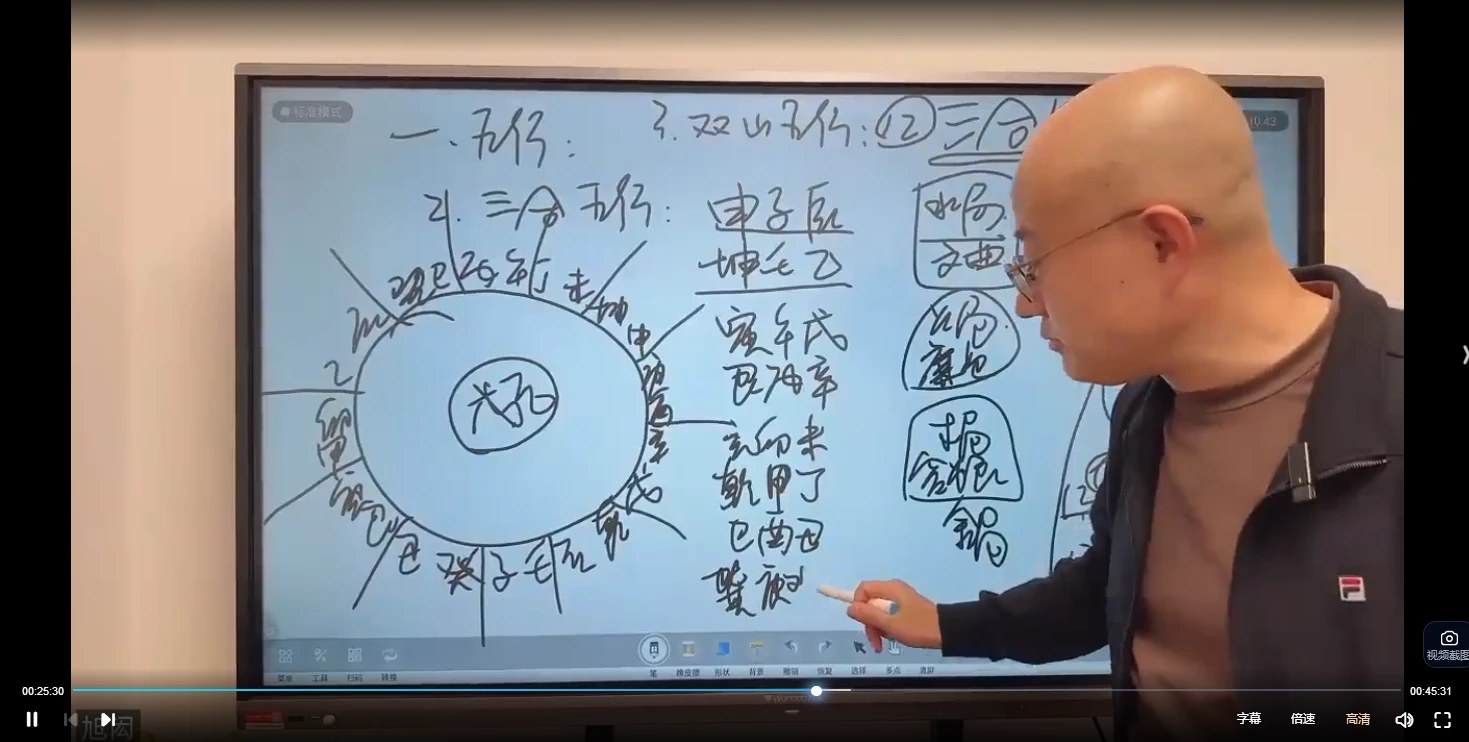 标准模式
10:43
一.五行:
3.双山五行:⑫三合
2.三合五行:
申子辰
坤壬乙
水局
文曲
寅午戌
艮丙辛
火局
廉贞
亥卯未
乾甲丁
木局
贪狼
巳酉丑
巽庚
金局
巽巳丙午丁未坤申庚酉辛戌乾亥壬子癸丑艮寅甲卯乙辰
菜单
工具
扫码
转换
笔
橡皮擦
形状
背景
撤销
恢复
选择
多点
清屏
视频截图
00:25:30
00:45:31
字幕
倍速
高清
旭闳